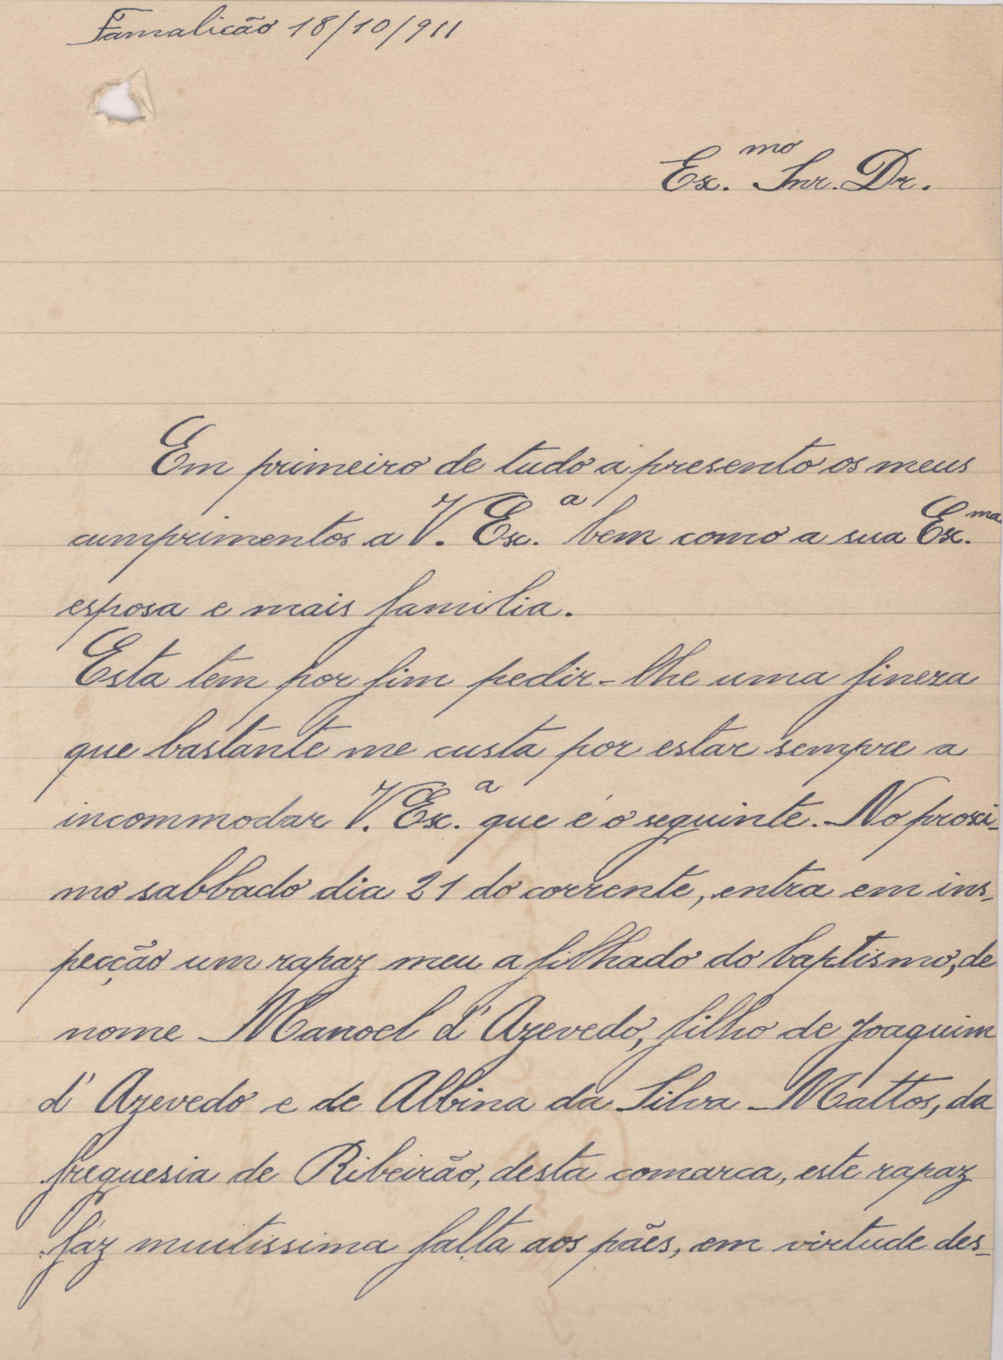 Famalicão 18/10/911
Ex.mo Snr. Dr.
Em primeiro de tudo apresento os meus
cumprimentos a V. Ex.a bem como a sua Ex.ma
esposa e mais familia.
Esta tem por fim pedir-lhe uma fineza
que bastante me custa por estar sempre a
incommodar V. Ex.a que é o seguinte. No proxi-
mo sabbado dia 21 do corrente, entra em ins-
pecção um rapaz meu afilhado do baptismo, de
nome Manoel d'Azevedo, filho de Joaquim
d'Azevedo e de Albina da Silva Mattos, da
freguesia de Ribeirão, desta comarca, este rapaz
fáz muitissima falta aos pães, em virtude des-